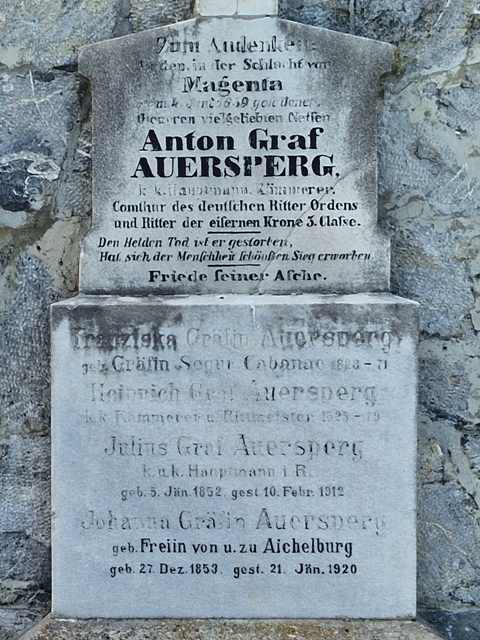 Zum Andenken
an den, in der Schlacht von
Magenta
vom 4. Juni 1859 gefallenen,
theueren vielgeliebten Neffen
Anton Graf
AUERSPERG,
k. k. Hauptmann, Kämmerer,
Comthur des deutschen Ritter Ordens
und Ritter der eisernen Krone 3. Classe.
Den Helden Tod ist er gestorben,
Hat sich der Menschheit schönsten Sieg erworben.
Friede seiner Asche.
Franziska Gräfin Auersperg
geb. Gräfin Segur Cabanac - 71
Heinrich Graf Auersperg
k. k. Kämmerer u. Rittmeister - 79
Julius Graf Auersperg
k. u. k. Hauptmann i. R.
geb. 5. Jän. 1852, gest. 10. Febr. 1912
Johanna Gräfin Auersperg
geb. Freiin von u. zu Aichelburg
geb. 27. Dez. 1853, gest. 21. Jän. 1920